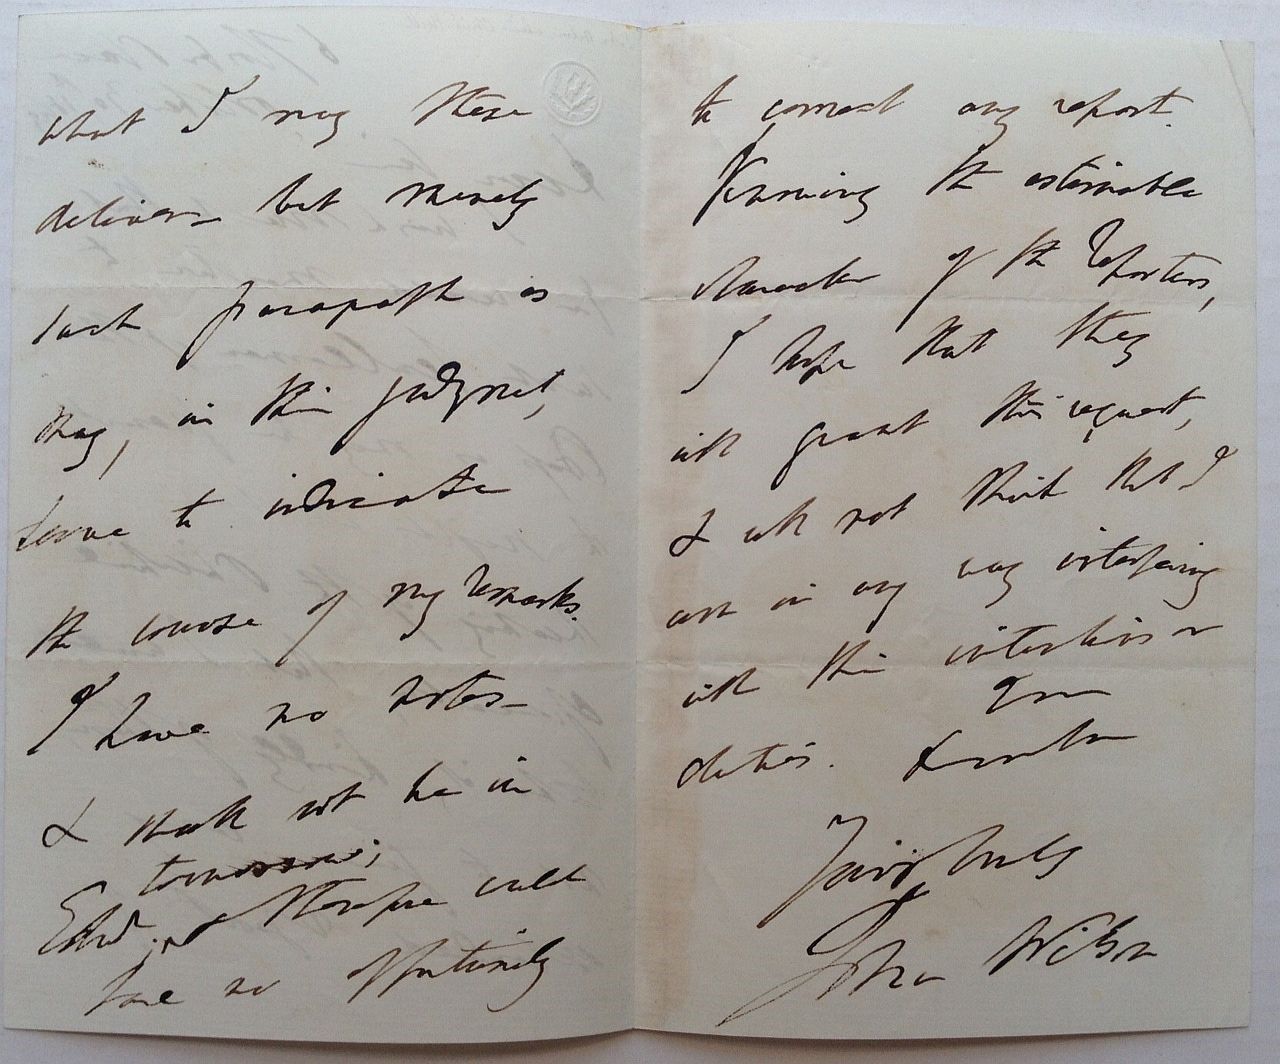 what I may there
deliver but merely
such paragraph as
may, in their judgment,
serve to indicate
the course of my remarks.
I have no notes -
& shall not be in
tomorrow;
Edinr. & therefore will
have no opportunity
to correct any report.
Knowing the estimable
character of the Reporters,
I hope that they
will grant this request,
& will not think that I
am in any way interfering
with their intentions or
duties.
Your
faithfully
John Wilson